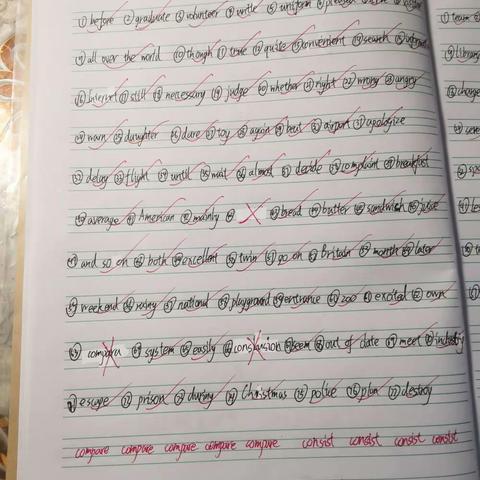 ① before ② graduate ③ volunteer ④ write ⑤ uniform ⑥
all over the world ⑩ though ⑪ true quite convenient search
Internet still necessary judge whether right wrong angry
warn daughter dare toy again beat airport apologize
delay flight until wait almost decide complaint breakfast
average American mainly bread butter sandwich juice
and so on both excellent twin go on Britain month later
weekend rainy national playground entrance zoo excited own
system easily seem out of date meet industry
escape prison during Christmas police plan destroy
compare compare compare compare compare consist consist consist consist